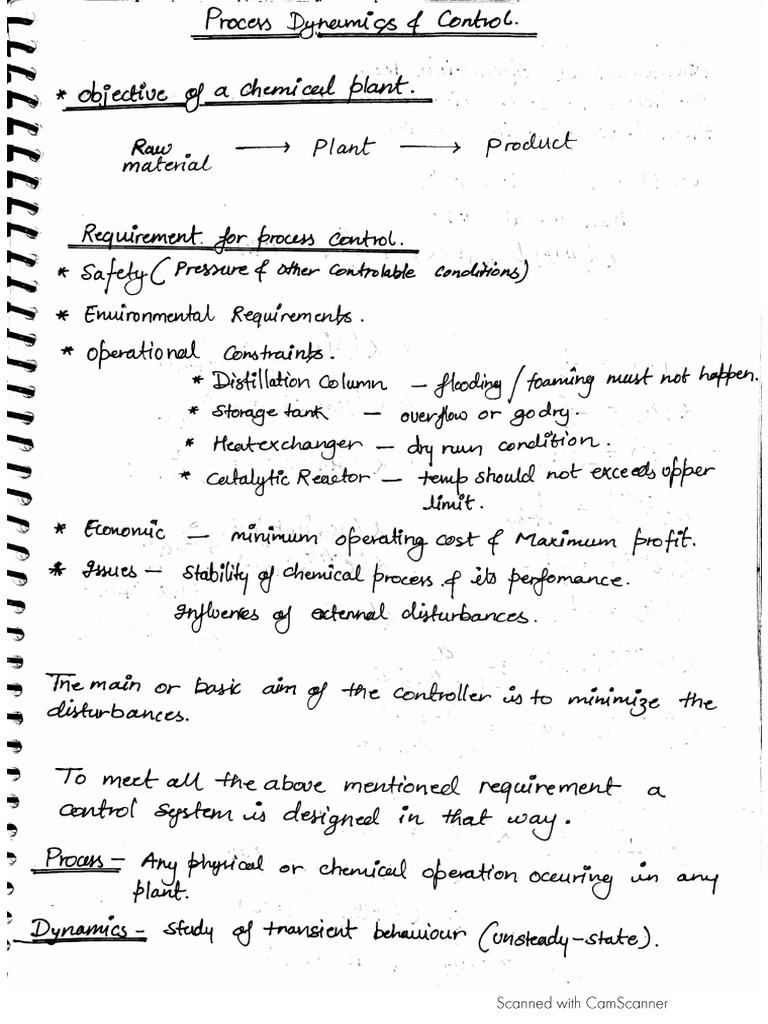 Process Dynamics & Control.
* Objective of a chemical plant.
Raw material ⟶ Plant ⟶ Product
Requirement for process control.
* Safety (Pressure & other controlable conditions)
* Environmental Requirements.
* Operational Constraints.
* Distillation Column — flooding / foaming must not happen.
* Storage tank — overflow or go dry.
* Heat exchanger — dry run condition.
* Catalytic Reactor — temp should not exceeds upper
limit.
* Economic — minimum operating cost & Maximum profit.
* Issues — Stability of chemical process & its perfomance.
Influenies of external disturbances.
The main or basic aim of the controller is to minimize the
disturbances.
To meet all the above mentioned requirement a
control system is designed in that way.
Process – Any physical or chemical operation occuring in any
plant.
Dynamics – study of transient behaviour (unsteady-state).
Scanned with CamScanner